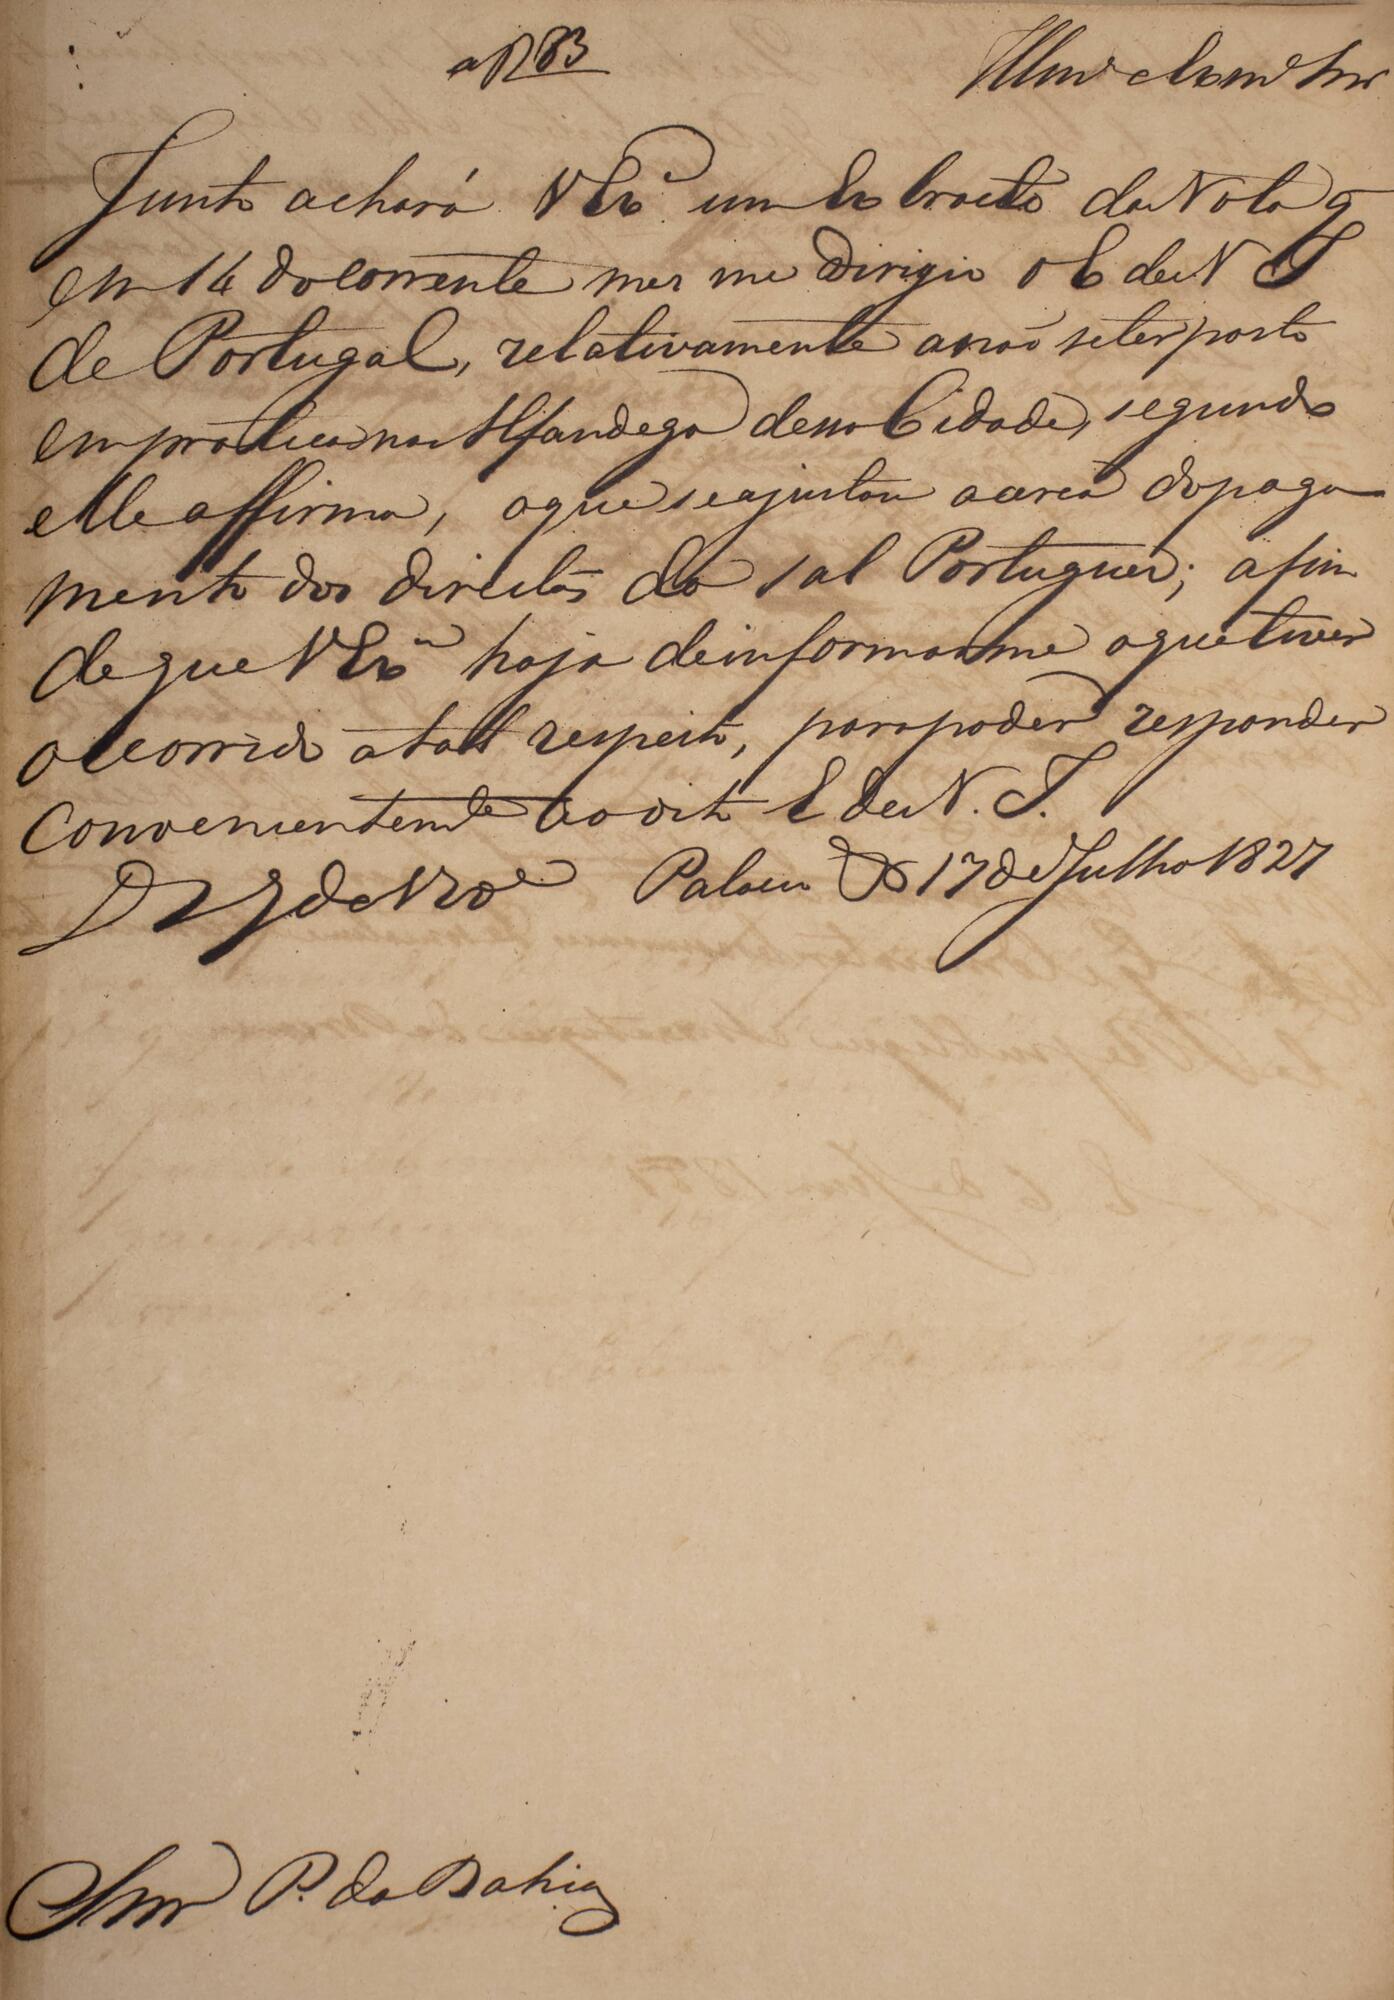 R 83
Illmo e Exmo Snr
Junto achará V Exª um Extracto da Nota q
em 14 do corrente mez me dirigio o E de N J
de Portugal, relativamente a não se ter posto
em pratica na Alfandega dessa Cidade, segundo
elle affirma, o que se ajustou acerca do paga
mento dos direitos do sal Portuguez; afim
de que V Exª haja de informarme o que tiver
occorrido a tal respeito, para poder responder
convenientemte ao dito E de N. J.
D G de V Exª Palacio 17 de Julho 1827
Snr P. da Bahia